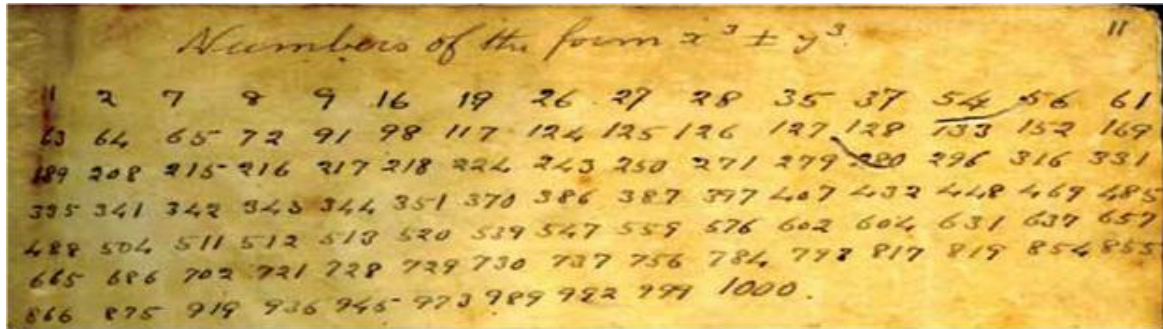 11
Numbers of the form x³ ± y³.
1 2 7 8 9 16 19 26 27 28 35 37 54 56 61
63 64 65 72 91 98 117 124 125 126 127 128 133 152 169
189 208 215 216 217 218 224 243 250 271 279 280 296 316 331
335 341 342 343 344 351 370 386 387 397 407 432 448 469 485
488 504 511 512 513 520 539 547 559 576 602 604 631 637 657
665 686 702 721 728 729 730 737 756 784 793 817 819 854 855
866 875 919 936 945 973 989 992 999 1000.